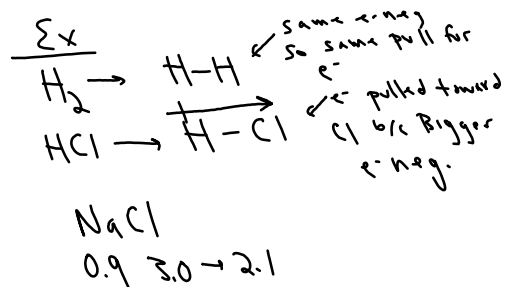 Ex
H2 → H-H ↙ same e-neg so same pull for e-
HCl → H-Cl ↙ e- pulled toward Cl b/c Bigger e-neg.
NaCl
0.9 3.0 → 2.1